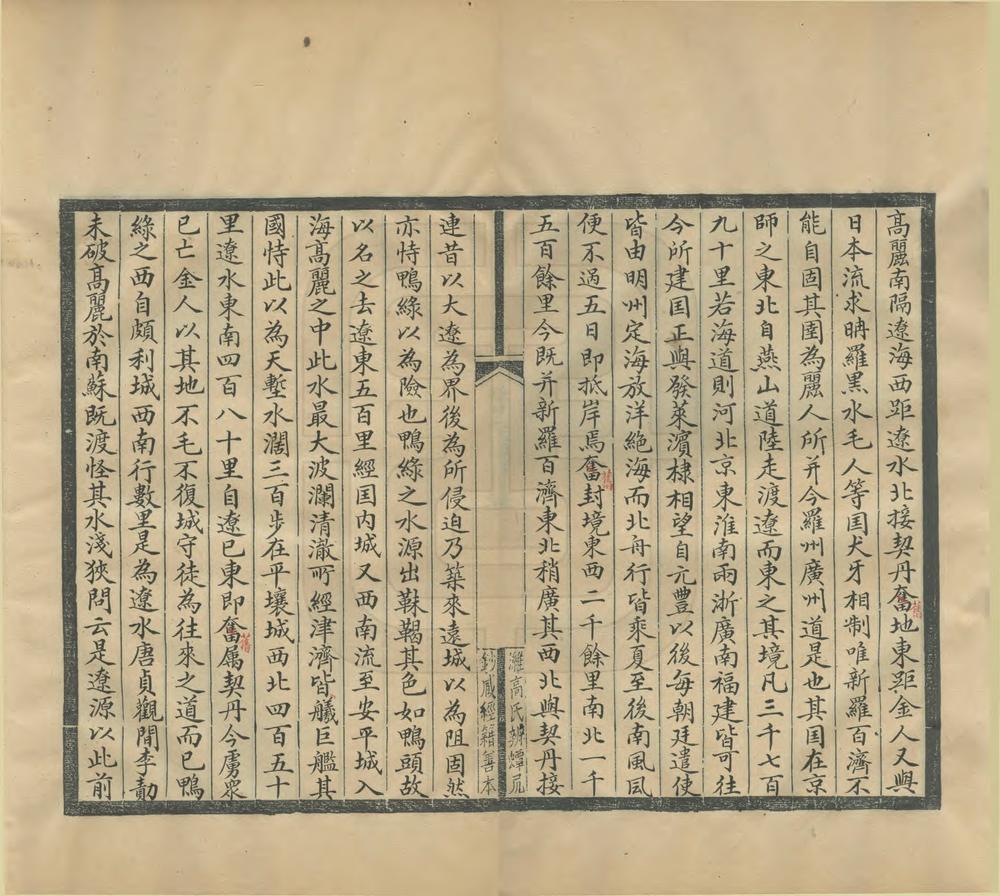 高麗南隔遼海西距遼水北接契丹奮地東距金人又與
舊
日本流求聃羅黑水毛人等国犬牙相制唯新羅百濟不
能自固其圉為麗人所并今羅州廣州道是也其国在京
師之東北自燕山道陸走渡遼而東之其境凡三千七百
九十里若海道則河北京東淮南兩浙廣南福建皆可往
今所建国正與發萊濵棣相望自元豊以後每朝廷遣使
皆由明州定海放洋絶海而北舟行皆乘夏至後南風風
便不過五日即抵岸焉奮封境東西二千餘里南北一千
舊
五百餘里今既并新羅百濟東北稍廣其西北與契丹接
濰高氏辨蟫居
鈔藏經籍善本
連昔以大遼為界後為所侵迫乃築來遠城以為阻固然
亦恃鴨綠以為險也鴨綠之水源出靺鞨其色如鴨頭故
以名之去遼東五百里經国内城又西南流至安平城入
海高麗之中此水最大波瀾清澈所經津濟皆艤巨艦其
國恃此以為天塹水濶三百步在平壤城西北四百五十
里遼水東南四百八十里自遼已東即奮属契丹今虜衆
舊
已亡金人以其地不毛不復城守徒為往來之道而已鴨
綠之西自頗利城西南行數里是為遼水唐貞觀間李勣
未破高麗於南蘇既渡怪其水淺狹問云是遼源以此前